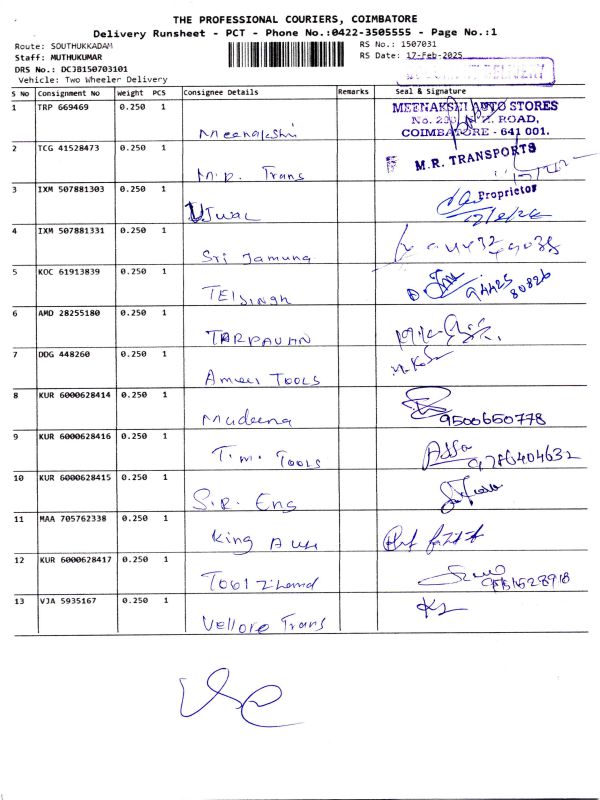 THE PROFESSIONAL COURIERS, COIMBATORE
Delivery Runsheet - PCT - Phone No.:0422-3505555 - Page No.:1
Route: SOUTHUKKADAM RS No.: 1507031
Staff: MUTHUKUMAR RS Date: 17-Feb-2025
DRS No.: DCJB150703101
Vehicle: Two Wheeler Delivery
S No Consignment No Weight PCS Consignee Details Remarks Seal & Signature
1 TRP 669469 0.250 1 Meenakshi MEENAKSHI AUTO STORES
ROAD,
COIMBATORE - 641 001.
2 TCG 41528473 0.250 1 M.R. Trans M.R. TRANSPORTS
Proprietor
3 IXM 507881303 0.250 1 UJWAL
4 IXM 507881331 0.250 1 Sri Jamuna
5 KOC 61913839 0.250 1 TEJSINGH 94425
80826
6 AMD 28255180 0.250 1 TARPAULIN
7 DDG 448260 0.250 1 TOOLS
8 KUR 6000628414 0.250 1 Madeena 9500650778
9 KUR 6000628416 0.250 1 T.M. TOOLS 9786404632
10 KUR 6000628415 0.250 1 S.R. Eng
11 MAA 705762338 0.250 1 King
12 KUR 6000628417 0.250 1
13 VJA 5935167 0.250 1 Vellore Trans